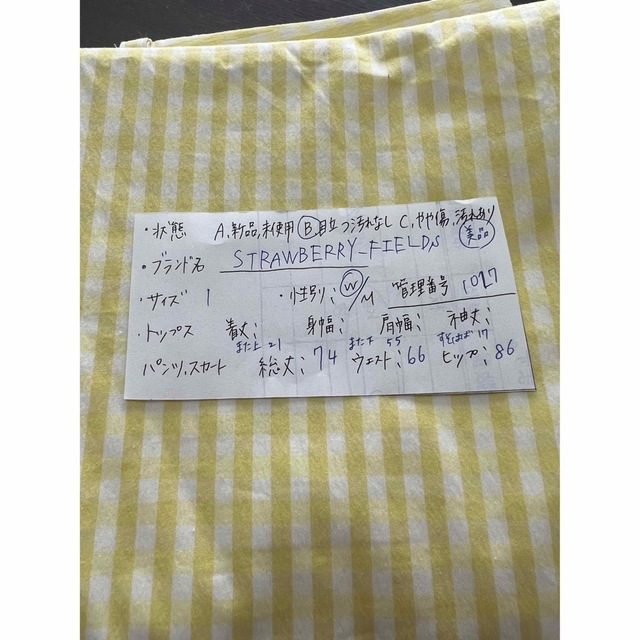 ・状態 A,新品,未使用 B,目立つ汚れなし C,やや傷,汚れあり
美品
・ブランド名 STRAWBERRY-FIELDS
・サイズ 1 ・性別;W/M 管理番号 1017
・トップス 着丈; 身幅; 肩幅; 袖丈;
また上 21 また下 55 すそはば 17
パンツ,スカート 総丈;74 ウエスト:66 ヒップ:86